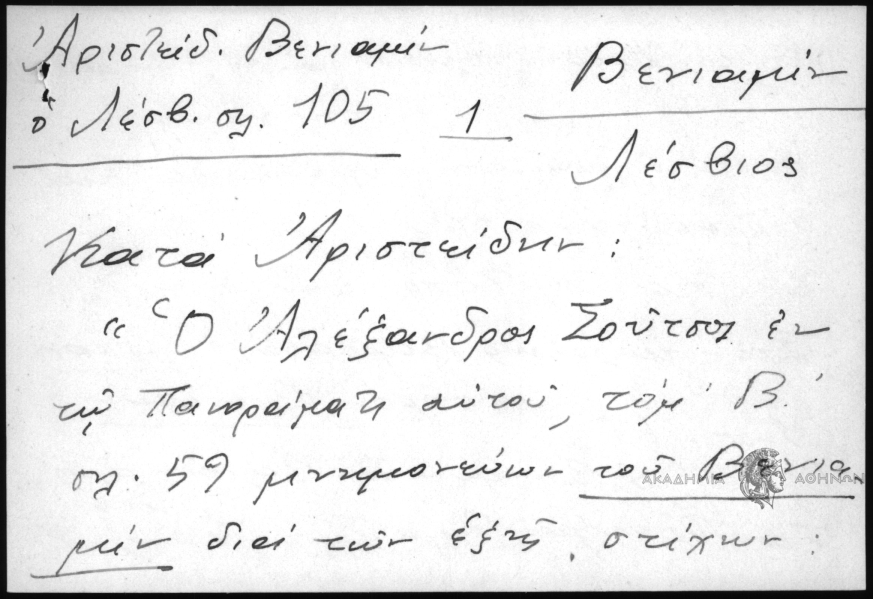 Ἀριστείδ. Βενιαμίν
ὁ Λέσβ. σλ. 105
1
Βενιαμίν
Λέσβιος
Κατά Ἀριστείδην :
« Ὁ Ἀλέξανδρος Σοῦτσος ἐν
τῷ Πανοράματι αὐτοῦ, τόμ. Β΄.
σλ. 59 μνημονεύων τοῦ Βενια
μίν διά τῶν ἑξῆς στίχων :
ΑΚΑΔΗΜΙΑ ΑΘΗΝΩΝ